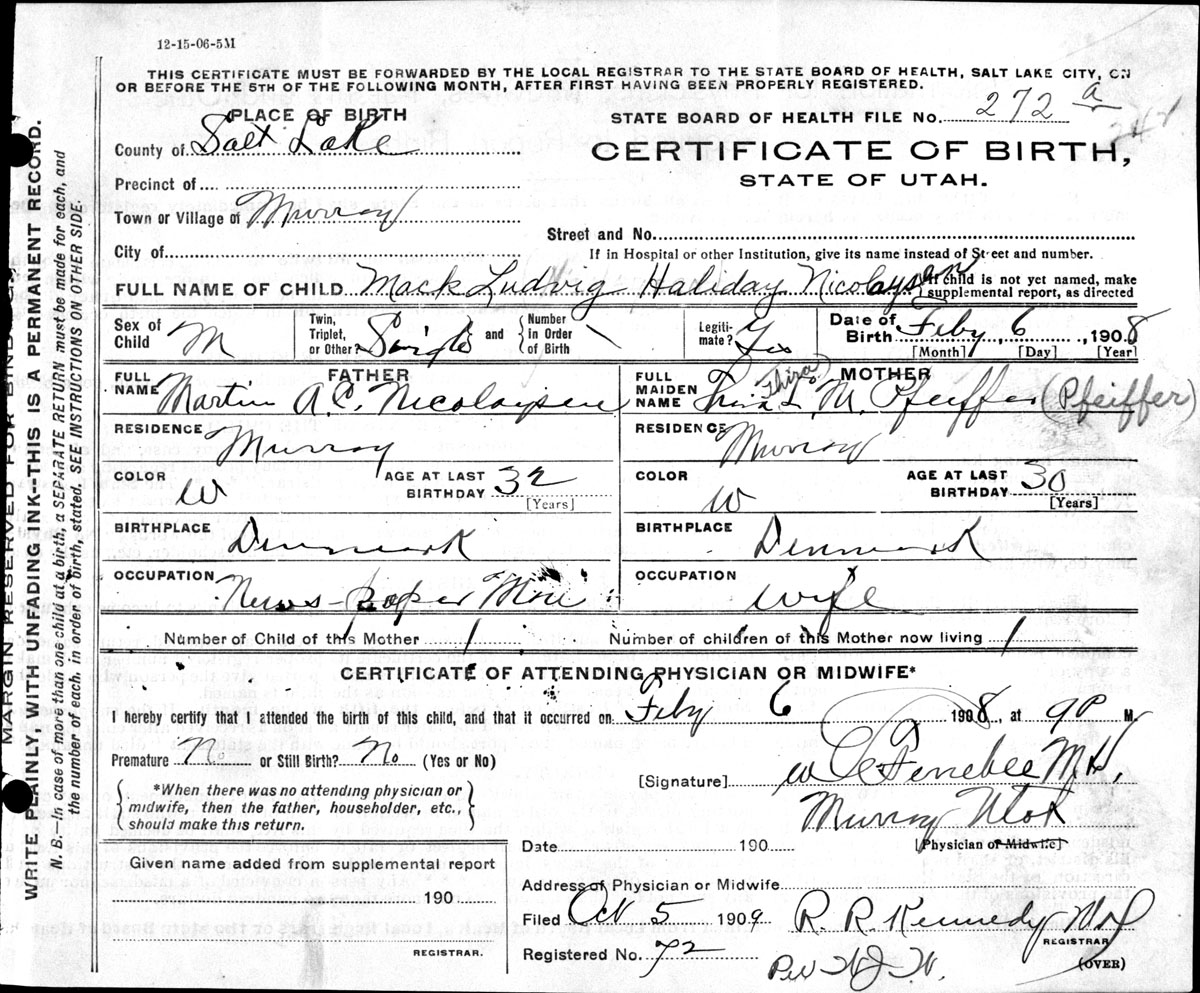 12-15-06-5M
THIS CERTIFICATE MUST BE FORWARDED BY THE LOCAL REGISTRAR TO THE STATE BOARD OF HEALTH, SALT LAKE CITY, ON
OR BEFORE THE 5TH OF THE FOLLOWING MONTH, AFTER FIRST HAVING BEEN PROPERLY REGISTERED.
PLACE OF BIRTH
STATE BOARD OF HEALTH FILE NO. 272 a
County of Salt Lake
CERTIFICATE OF BIRTH,
STATE OF UTAH.
Precinct of
Town or Village of Murray
Street and No.
City of
If in Hospital or other Institution, give its name instead of Street and number.
FULL NAME OF CHILD Mack Ludvig Haliday Nicolaysen
If child is not yet named, make
supplemental report, as directed
Sex of Child M
Twin, Triplet, or Other? Single and Number in Order of Birth
Legitimate? Yes
Date of Birth Feby 6, 1908
[Month] [Day] [Year]
FATHER
FULL NAME Martin A.C. Nicolaysen
RESIDENCE Murray
COLOR W AGE AT LAST BIRTHDAY 32
[Years]
BIRTHPLACE Denmark
OCCUPATION News-paper Man
MOTHER
FULL MAIDEN NAME Thira L. M. Pfeiffer (Pfeiffer)
RESIDENCE Murray
COLOR W AGE AT LAST BIRTHDAY 30
[Years]
BIRTHPLACE Denmark
OCCUPATION wife
Number of Child of this Mother 1 Number of children of this Mother now living 1
CERTIFICATE OF ATTENDING PHYSICIAN OR MIDWIFE*
I hereby certify that I attended the birth of this child, and that it occurred on Feby 6 1908, at 9 P M.
Premature No or Still Birth? No (Yes or No)
[Signature] Ferrebee M.D.
*When there was no attending physician or
midwife, then the father, householder, etc.,
should make this return.
Murray Utah
Date 190
[Physician or Midwife]
Given name added from supplemental report
190
REGISTRAR.
Address of Physician or Midwife
Filed Oct 5 1909 R. R. Kennedy
REGISTRAR
Registered No. 72
Per W.J.W.
(OVER)
MARGIN RESERVED FOR BINDING.
WRITE PLAINLY, WITH UNFADING INK--THIS IS A PERMANENT RECORD.
N. B.—In case of more than one child at a birth, a SEPARATE RETURN must be made for each, and
the number of each, in order of birth, stated. SEE INSTRUCTIONS ON OTHER SIDE.